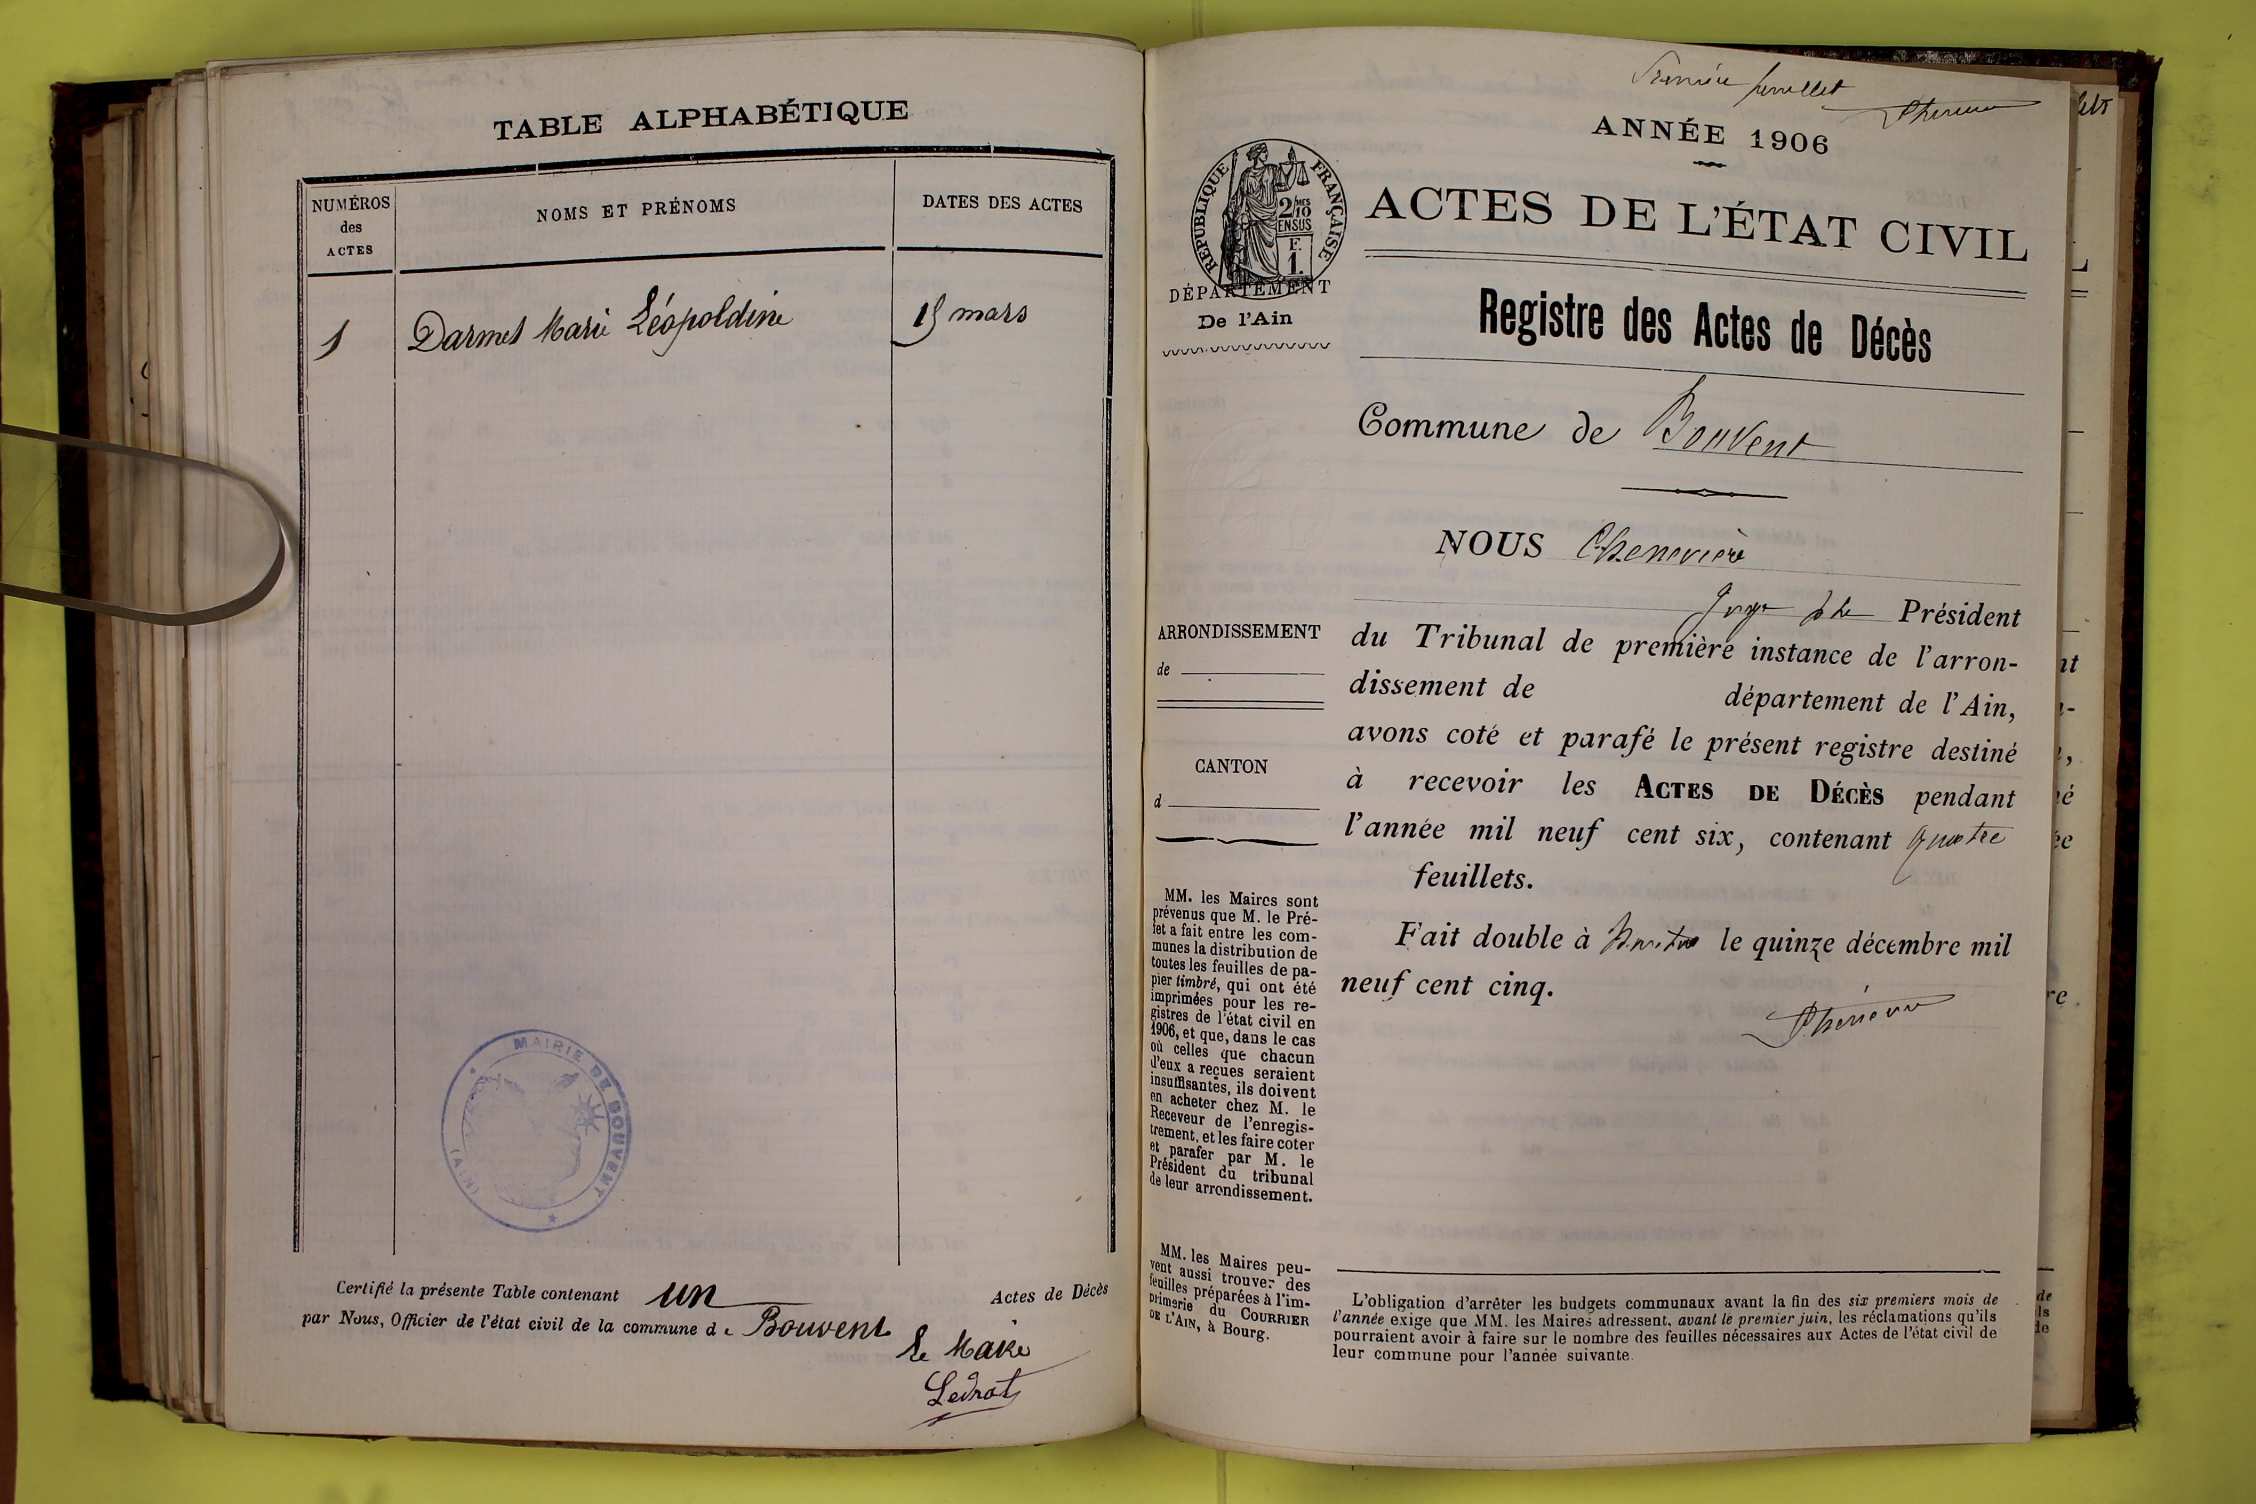 TABLE ALPHABÉTIQUE
NUMÉROS
des
ACTES
NOMS ET PRÉNOMS
DATES DES ACTES
1
Darmet Marie Léopoldine
15 mars
MAIRIE DE BOUVENT
(AIN)
Certifié la présente Table contenant un Actes de Décès
par Nous, Officier de l'état civil de la commune de Bouvent
Le Maire
Ledrot
Premier feuillet
ANNÉE 1906
RÉPUBLIQUE FRANÇAISE
2/10
EN SUS
F.
1.
ACTES DE L'ÉTAT CIVIL
DÉPARTEMENT
De l'Ain
Registre des Actes de Décès
Commune de Bouvent
NOUS Chenevière
Juge Président
ARRONDISSEMENT
de
du Tribunal de première instance de l'arron-
dissement de département de l'Ain,
avons coté et parafé le présent registre destiné
CANTON
d
à recevoir les ACTES DE DÉCÈS pendant
l'année mil neuf cent six, contenant quatre
feuillets.
Fait double à le quinze décembre mil
neuf cent cinq.
MM. les Maires sont
prévenus que M. le Pré-
fet a fait entre les com-
munes la distribution de
toutes les feuilles de pa-
pier timbré, qui ont été
imprimées pour les re-
gistres de l'état civil en
1906, et que, dans le cas
où celles que chacun
d'eux a reçues seraient
insuffisantes, ils doivent
en acheter chez M. le
Receveur de l'enregis-
trement, et les faire coter
et parafer par M. le
Président du tribunal
de leur arrondissement.
MM. les Maires peu-
vent aussi trouver des
feuilles préparées à l'im-
primerie du COURRIER
DE L'AIN, à Bourg.
L'obligation d'arrêter les budgets communaux avant la fin des six premiers mois de
l'année exige que MM. les Maires adressent, avant le premier juin, les réclamations qu'ils
pourraient avoir à faire sur le nombre des feuilles nécessaires aux Actes de l'état civil de
leur commune pour l'année suivante.